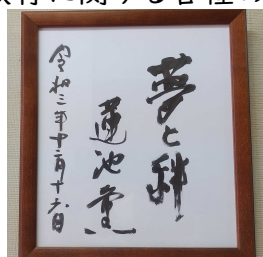 に関する各種
夢と絆
蓮池薫
令和三年十二月十六日